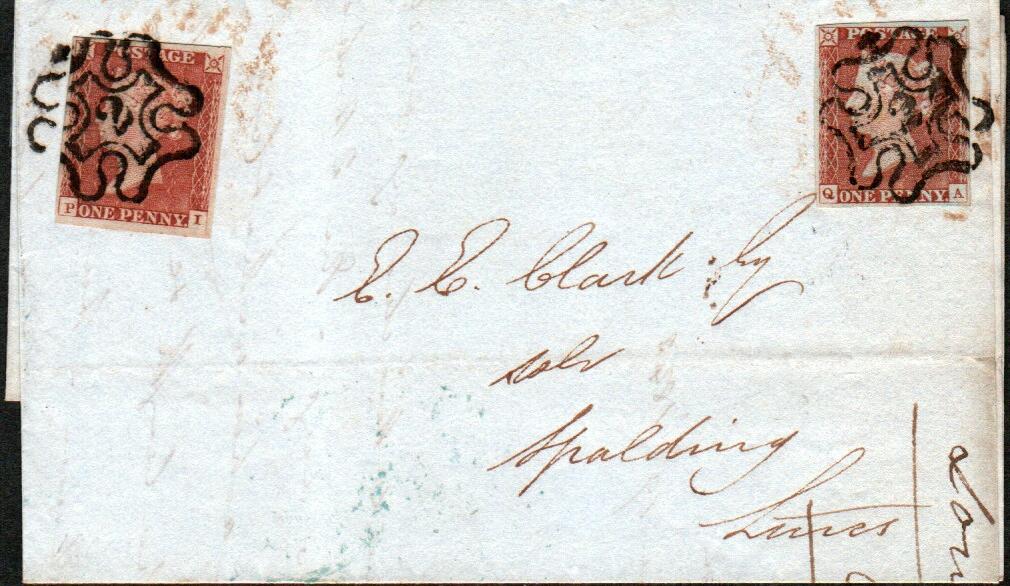 POSTAGE
2
P ONE PENNY. I
POSTAGE
2
Q ONE PENNY. A
E. C. Clark
solr
Spalding
Lincs